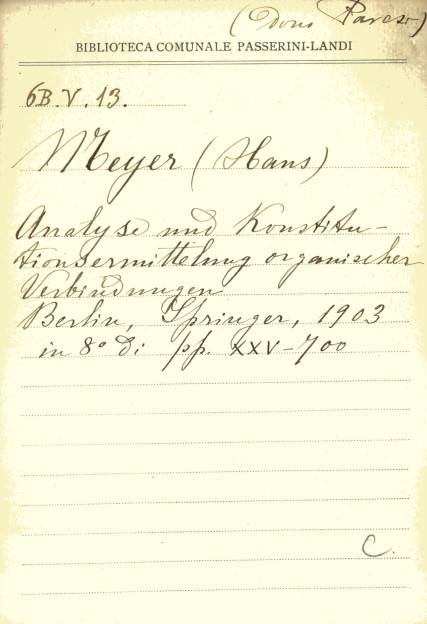 (Dono
BIBLIOTECA COMUNALE PASSERINI-LANDI
6B.V.13.
Meyer (Hans)
Analyse und Konstitu-
tionsermittelung organischer
Verbindungen
Berlin, Springer, 1903
in 8° di pp. XXV-700
C.